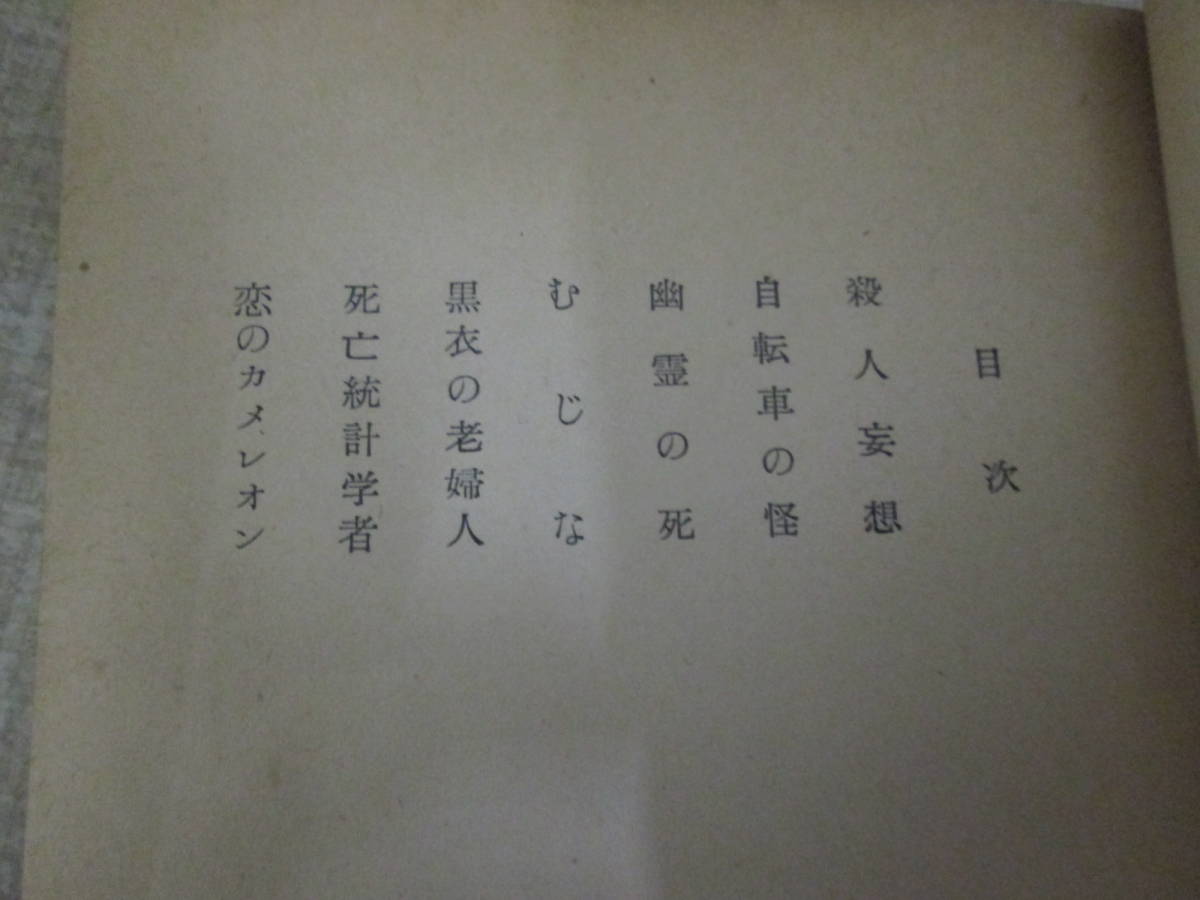 目次
殺人妄想
自転車の怪
幽霊の死
むじな
黒衣の老婦人
死亡統計学者
恋のカメレオン